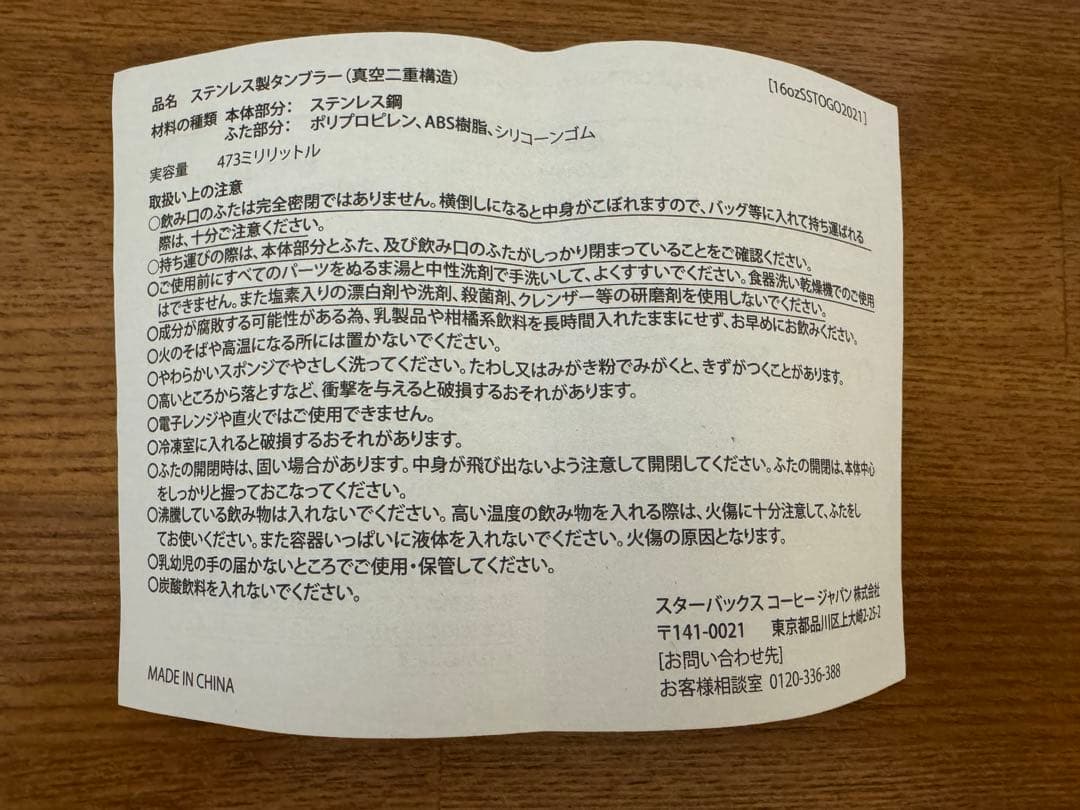 品名 ステンレス製タンブラー（真空二重構造）
[16ozSSTOGO2021]
材料の種類 本体部分： ステンレス鋼
ふた部分： ポリプロピレン、ABS樹脂、シリコーンゴム
実容量 473ミリリットル
取扱い上の注意
○飲み口のふたは完全密閉ではありません。横倒しになると中身がこぼれますので、バッグ等に入れて持ち運ばれる
際は、十分ご注意ください。
○持ち運びの際は、本体部分とふた、及び飲み口のふたがしっかり閉まっていることをご確認ください。
○ご使用前にすべてのパーツをぬるま湯と中性洗剤で手洗いして、よくすすいでください。食器洗い乾燥機でのご使用
はできません。また塩素入りの漂白剤や洗剤、殺菌剤、クレンザー等の研磨剤を使用しないでください。
○成分が腐敗する可能性がある為、乳製品や柑橘系飲料を長時間入れたままにせず、お早めにお飲みください。
○火のそばや高温になる所には置かないでください。
○やわらかいスポンジでやさしく洗ってください。たわし又はみがき粉でみがくと、きずがつくことがあります。
○高いところから落とすなど、衝撃を与えると破損するおそれがあります。
○電子レンジや直火ではご使用できません。
○冷凍室に入れると破損するおそれがあります。
○ふたの開閉時は、固い場合があります。中身が飛び出ないよう注意して開閉してください。ふたの開閉は、本体中心
をしっかりと握っておこなってください。
○沸騰している飲み物は入れないでください。高い温度の飲み物を入れる際は、火傷に十分注意して、ふたをし
てお使いください。また容器いっぱいに液体を入れないでください。火傷の原因となります。
○乳幼児の手の届かないところでご使用・保管してください。
○炭酸飲料を入れないでください。
スターバックス コーヒー ジャパン 株式会社
〒141-0021 東京都品川区上大崎2-25-2
[お問い合わせ先]
お客様相談室 0120-336-388
MADE IN CHINA